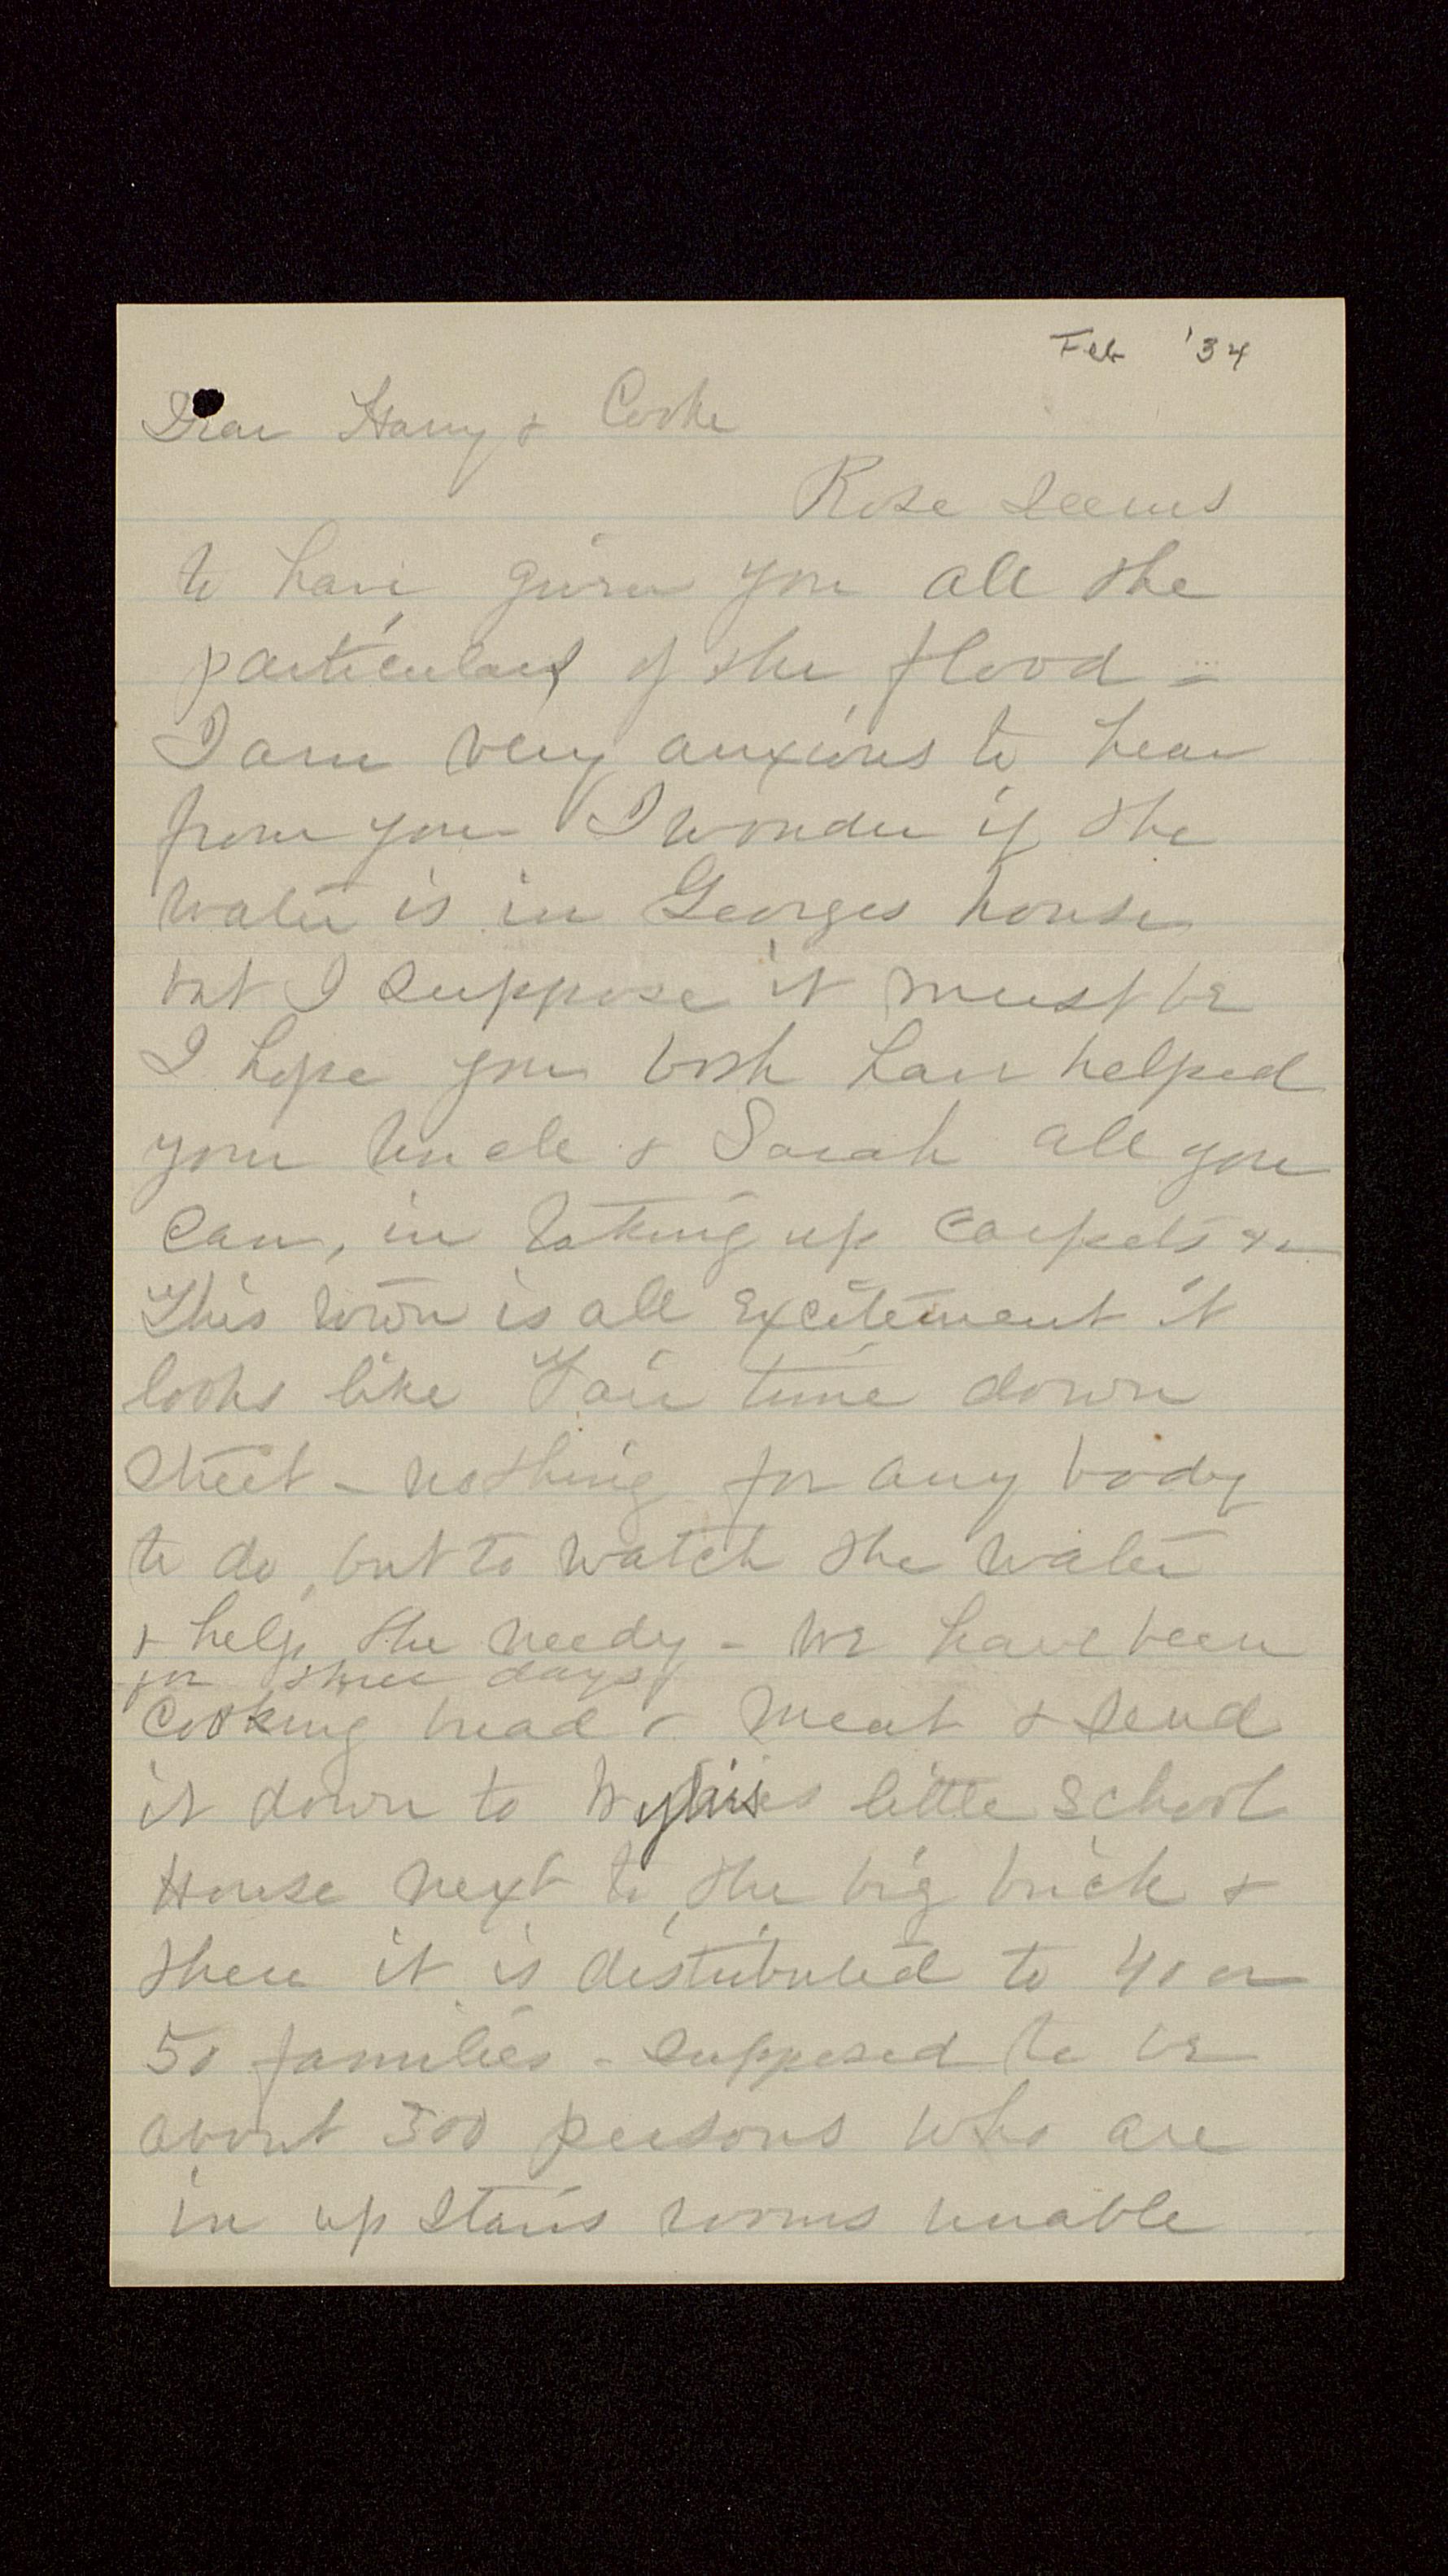 Feb '34
Dear Harry & Cooke
Rose seems
to have given you all the
particulars of the flood -
I am very anxious to hear
from you - I wonder if the
water is in Georges house
but I suppose it must be
I hope you both have helped
your Uncle & Sarah all you
can, in taking up carpets &c
This town is all excitement it
looks like Fair time down
street - nothing for any body
to do, but to watch the water
& help the needy - We have been
for three days
cooking bread & meat & send
it down to little School
House next to the big brick &
there it is distributed to 40 or
50 families - supposed to be
about 300 persons who are
in up stairs rooms unable